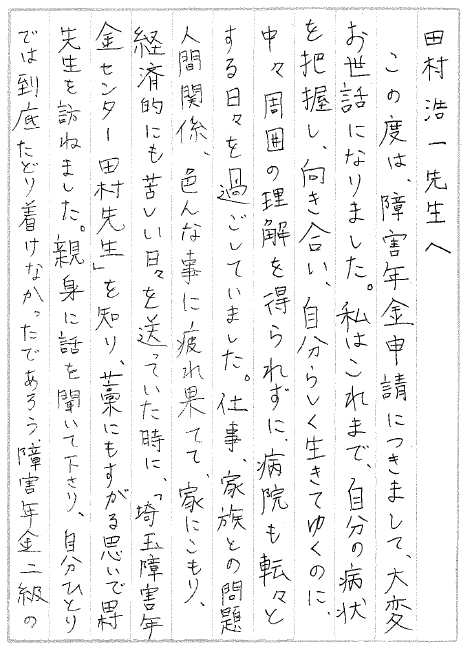 田村浩一先生へ
この度は、障害年金申請につきまして、大変
お世話になりました。私はこれまで、自分の病状
を把握し、向き合い、自分らしく生きてゆくのに、
中々周囲の理解を得られずに、病院も転々と
する日々を過ごしていました。仕事、家族との問題
人間関係、色んな事に疲れ果てて、家にこもり、
経済的にも苦しい日々を送っていた時に、「埼玉障害年
金センター田村先生」を知り、藁にもすがる思いで田村
先生を訪ねました。親身に話を聞いて下さり、自分ひとり
では到底たどり着けなかったであろう障害年金二級の